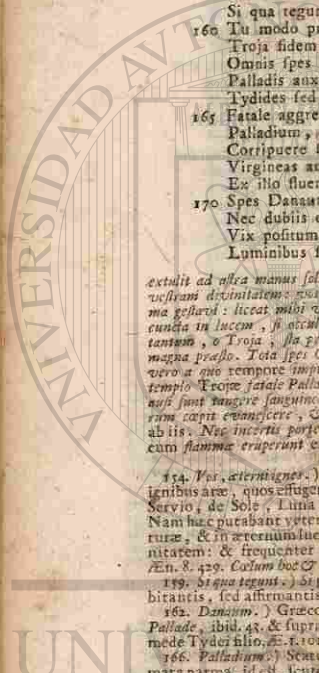 Si qua tegun
160 Tu modo pr
Troja fidem
Omnis ſpes
Palladis aux
Tydides ſed
165 Fatale aggre
Palladium,
Corripuere
Virgineas au
Ex illo fluer
170 Spes Danaum
Nec dubiis
Vix poſitum
Luminibus
extulit ad aſtra manus ſol
veſtram divinitatem:
ma geſtavi: liceat mihi
cuncta in lucem, ſi occul
tantum, o Troja; ſta
magna præſto. Tota ſpes
vero a quo tempore impi
templo Trojæ fatale Palla
auſi ſunt tangere ſanguine
rum cœpit evaneſcere,
ab iis. Nec incertis porte
cum flammæ eruperunt
154. Vos, æterni ignes.)
ignibus aræ, quos effuger
Servio, de Sole, Luna
Nam hæc putabant veter
turæ, & in æternum luc
nitatem: & frequenter
Æn. 8. 429. Cœlum hoc &
159. Si qua tegunt.) Si
bitantis, ſed affirmantis
162. Danaum.) Græco
Pallade, ibid. 43. & ſupra
mede Tydei filio, Æ. 1. 101
166. Palladium.) Statu
UNI